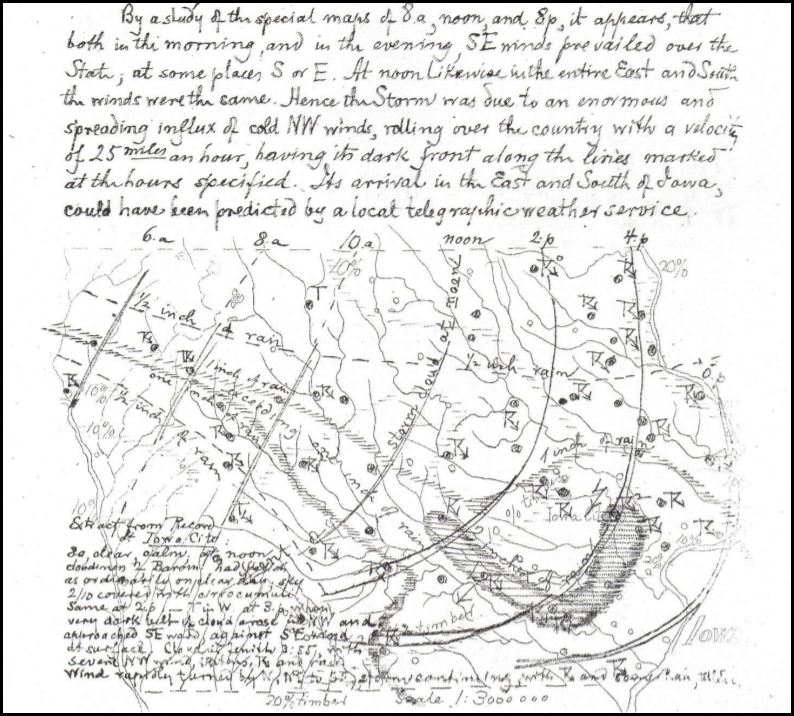 By a study of the special maps of 8.a, noon, and 8p, it appears, that
both in the morning, and in the evening, SE winds prevailed over the
State; at some places S or E. At noon likewise in the entire East and South
the winds were the same. Hence the Storm was due to an enormous and
spreading influx of cold NW winds, rolling over the country with a velocity
of 25 miles an hour, having its dark front along the lines marked
at the hours specified. Its arrival in the East and South of Iowa,
could have been predicted by a local telegraphic weather service.
6.a 8.a 10.a noon 2.p 4.p
10% 20%
½ inch of rain
½ inch rain
one inch of rain
1 inch of rain
exceeding one inch of rain
storm cloud at noon
10% ½ inch of rain
10%
1 inch of rain
Iowa City
2 inches of rain
10%
Extract from Record
of Iowa City:
8a, clear, calm,
as ordinarily on clear day, sky
2/10 covered with
Same at 2p — T in W. at 3.p, when
very dark belt of cloud arose in NW and
approached SE ward, against SE wind
at surface. Cloud in zenith 3:55, with
severe NW wind,
Wind rapidly turned
timber
Iowa
20% timber Scale 1:3000000